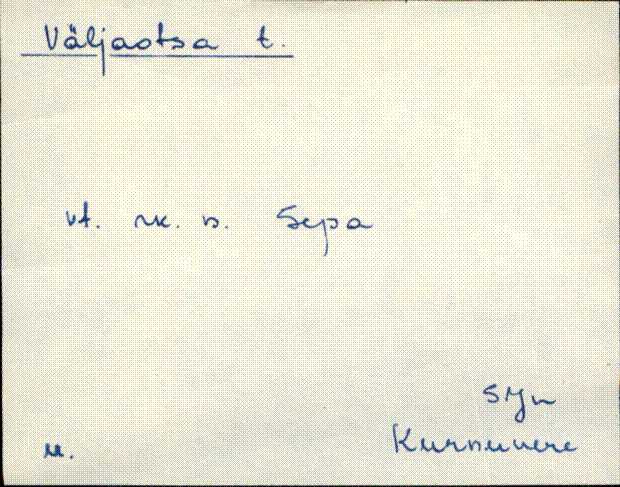 Väljaotsa t.
vt. rk. n. Sepa
SJn
Kurnuvere
u.